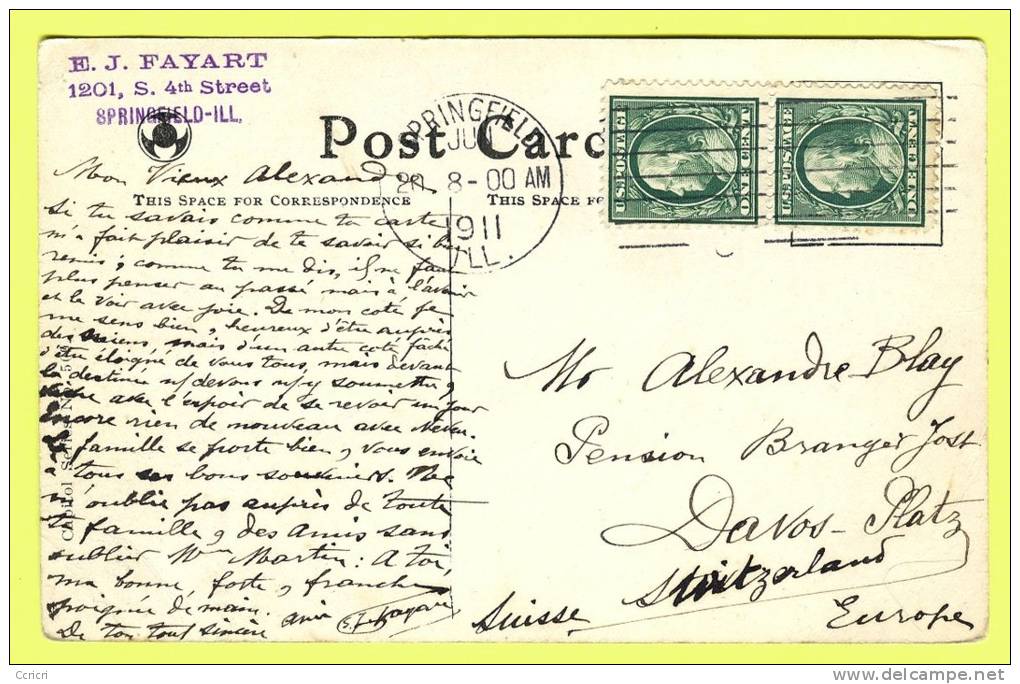 E. J. FAYART
1201, S. 4th Street
SPRINGFIELD-ILL,
Post Card
SPRINGFIELD
JUL
20 8-00 AM
1911
ILL.
U.S. POSTAGE
ONE CENT
U.S. POSTAGE
ONE CENT
THIS SPACE FOR CORRESPONDENCE
THIS SPACE FO
Mon Vieux Alexand
Si tu savais comme ta carte
m'a fait plaisir de te savoir si bien
remis; comme tu me dis, il ne faut
plus penser au passé mais à l'avenir
et le voir avec joie. De mon coté je
me sens bien, heureux d'être auprès
des miens, mais d'un autre coté fâché
d'être éloigné de vous tous, mais devant
la destinée n/ devons n/ y soumettre,
avec l'espoir de se revoir un jour
Encore rien de nouveau avec
famille se porte bien, vous envoie
à tous ses bons souvenirs. Ne
m'oublie pas auprès de toute
ta famille, des Amis sans
oublier Mme Martin: A toi,
ma bonne, forte, franche
poignée de main.
De ton tout sincère ami E. J. Fayart
Capitol Series No.
Mr Alexandre Blay
Pension Branger Jost
Davos-Platz
Switzerland
Suisse Europe
Ccricri
www.delcampe.net